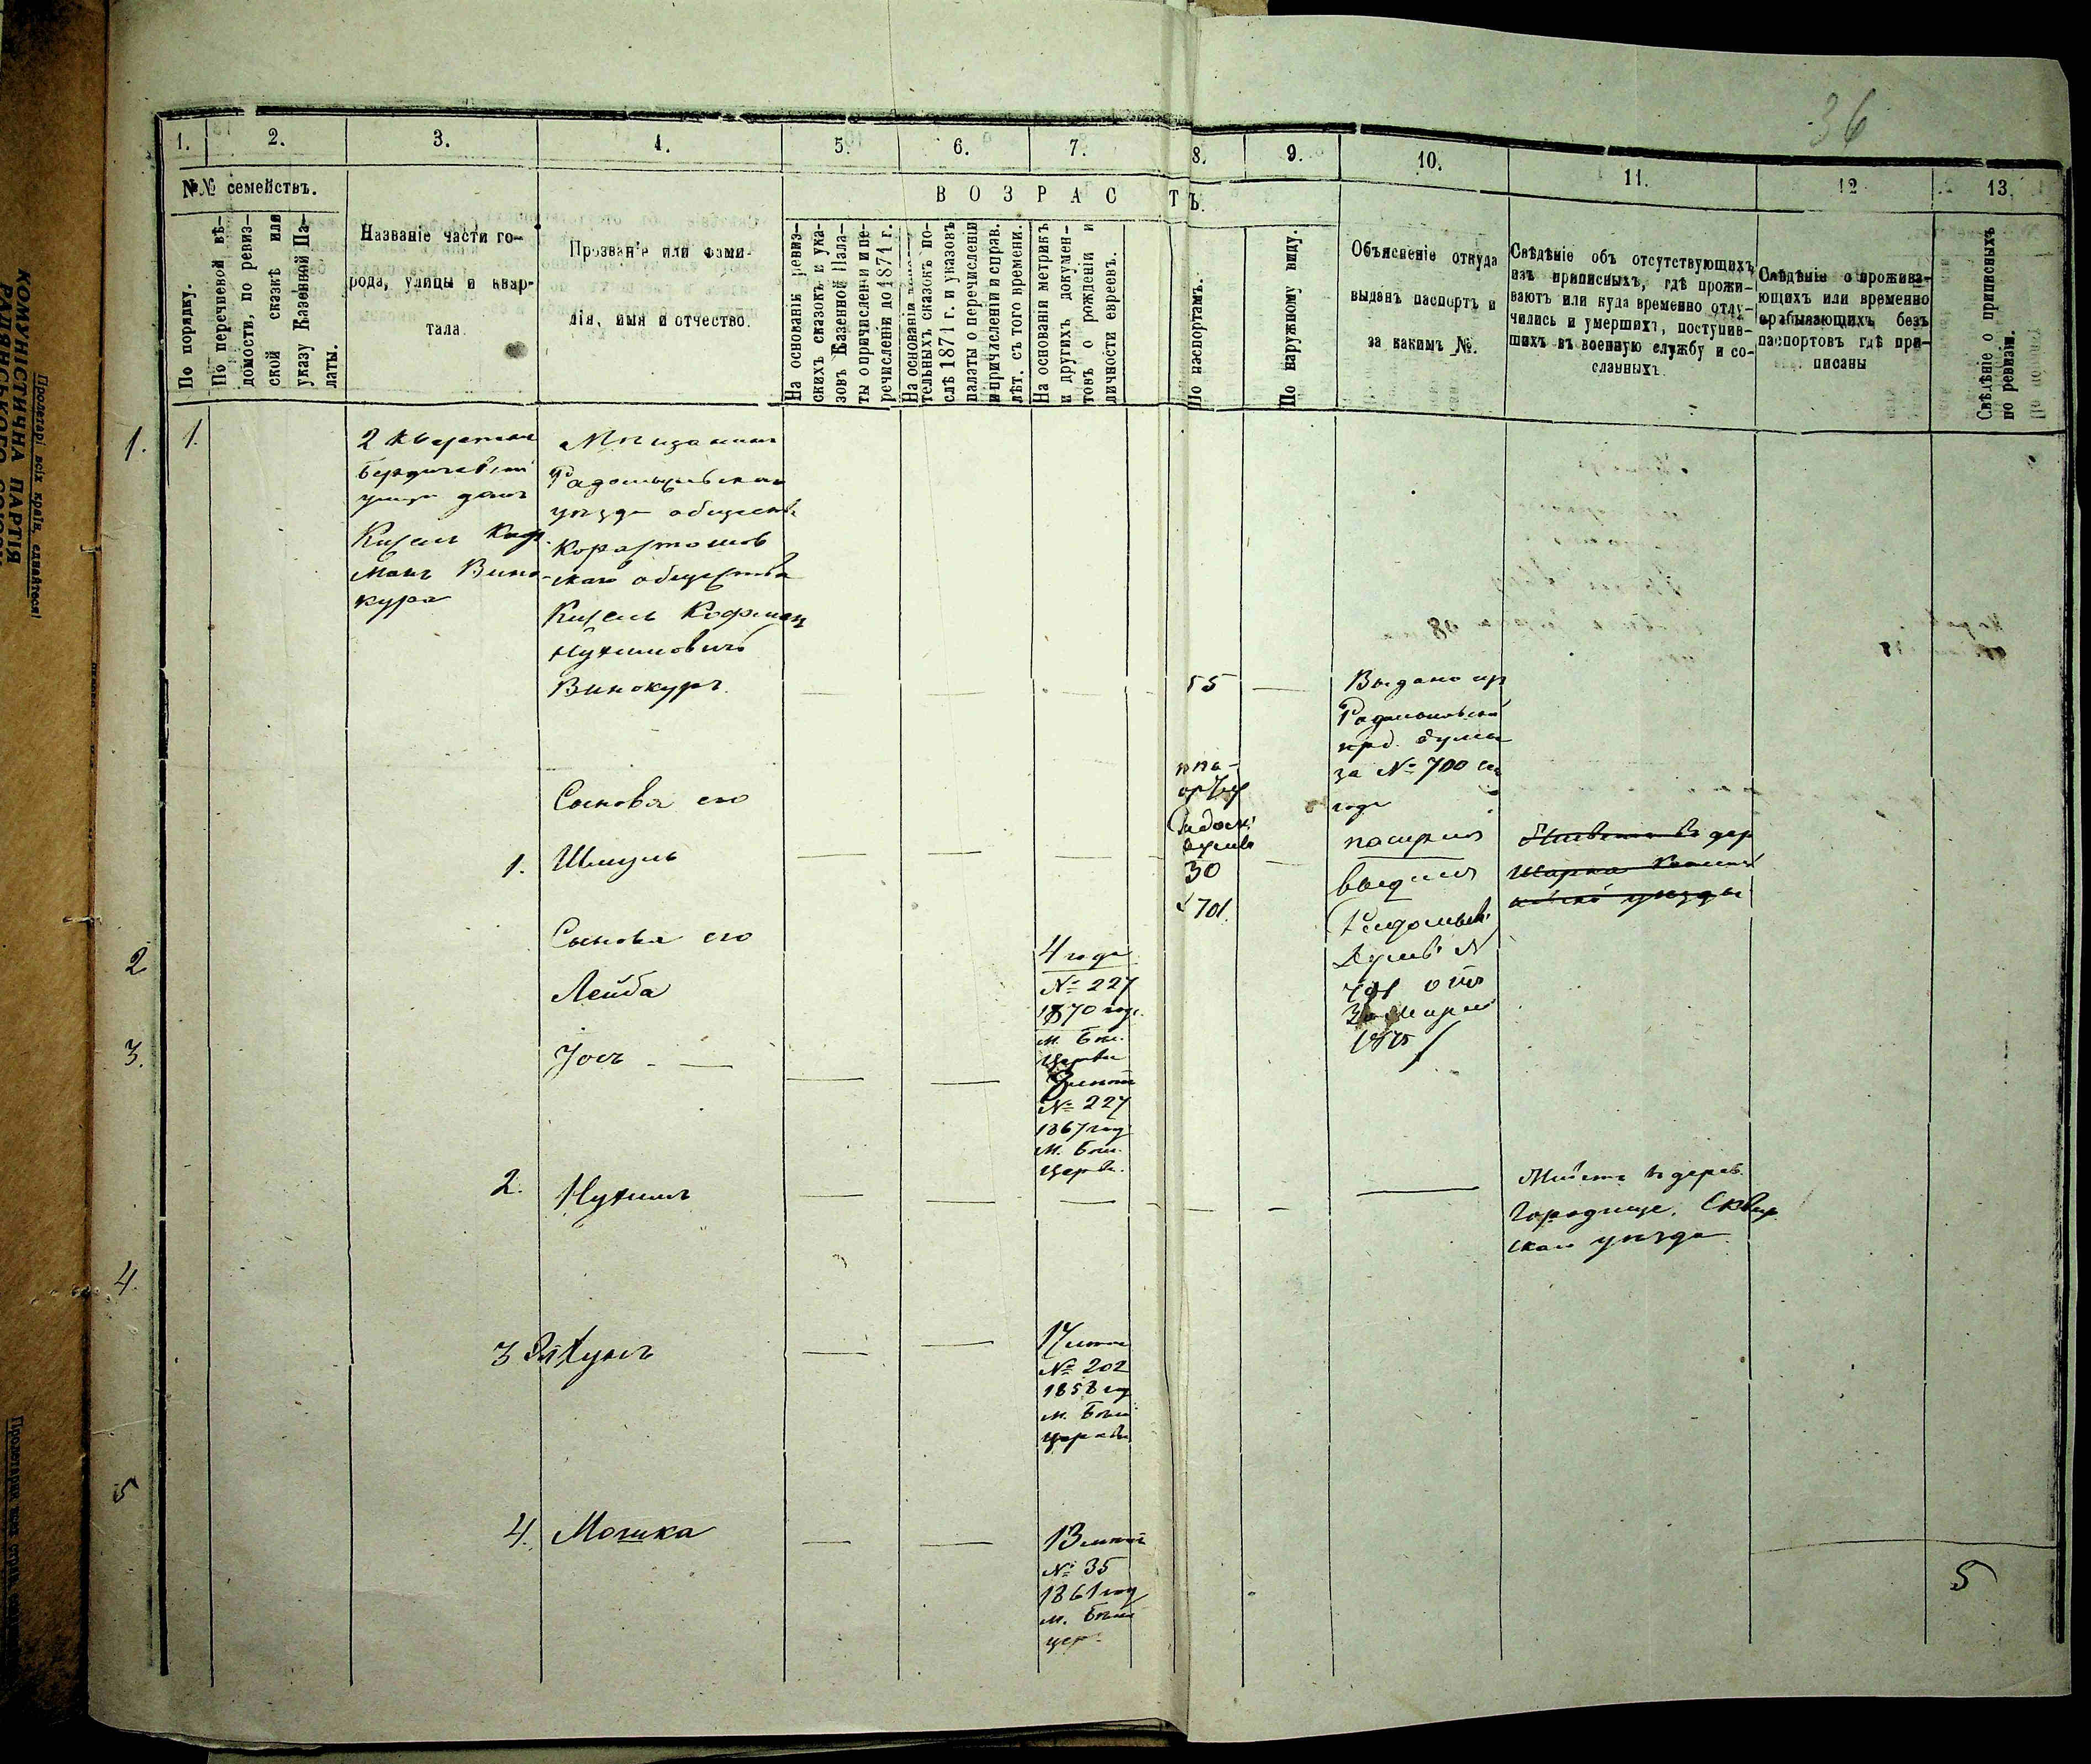 36
1. 2. 3. 4. 5. 6. 7. 8. 9. 10. 11. 12 13.
№№ семействъ.
В О З Р А С Т Ъ.
По порядку.
По перечневой вѣ-
домости, по ревиз-
ской сказкѣ или
указу Казенной Па-
латы.
Названіе части го-
рода, улицы и квар-
тала.
Прозваніе или фами-
лія, имя и отчество.
На основаніи ревиз-
скихъ сказокъ и ука-
зовъ Казенной Пала-
ты о причисленіи и пе-
речисленіи до 1871 г.
На основаніи
тельныхъ сказокъ по-
слѣ 1871 г. и указовъ
палаты о перечисленіи
и причисленіи и справ.
лѣт. съ того времени.
На основаніи метрикъ
и другихъ докумен-
товъ о рожденіи и
личности евреевъ.
По паспортамъ.
По наружному виду.
Объясненіе откуда
выданъ паспортъ и
за какимъ №.
Свѣдѣніе объ отсутствующихъ
изъ приписныхъ, гдѣ прожи-
ваютъ или куда временно отлу-
чились и умершихъ, поступив-
шихъ въ военную службу и со-
сланныхъ.
Свѣдѣніе о прожива-
ющихъ или временно
прабывающихъ безъ
паспортовъ гдѣ при-
писаны
Свѣдѣніе о приписныхъ
по ревизіи.
1. 1.
2 квартал
Бердичевской
улици домъ
Кисель Коф
манъ Вино
кура
Мѣщанинъ
Радомысльскаго
уѣзда общества
Коростошов
скаго общества
Кисель Кофман
Нухимовичъ
Винокуръ.
55
Выдано из
Радомысльской
гор. думы
за № 700
года
Сыновья его
1. Шмуль
30
№ 701
паспортъ
выданъ
Радомысл.
Думы №
701 отъ
Марта
1875
Живетъ въ дер
уѣзды
2
Сыновья его
Лейба
4 года
№ 227
1870 годе
м. Бѣл.
Церкви
3.
Іось
№ 227
1867 год
м. Бѣл.
Церкви.
2. Нухимъ
Живетъ въ дерев.
Городище, Сквир
скаго уѣзда
4.
3
17 лѣтъ
№ 202
1858 год
м. Бѣл
Церкви
5
4. Мошка
13 лѣтъ
№ 35
1861 год
м. Бѣл
цер.
5
Пролетарі всіх країн, єднайтеся!
КОМУНІСТИЧНА ПАРТІЯ
РАДЯНСЬКОГО СОЮЗУ